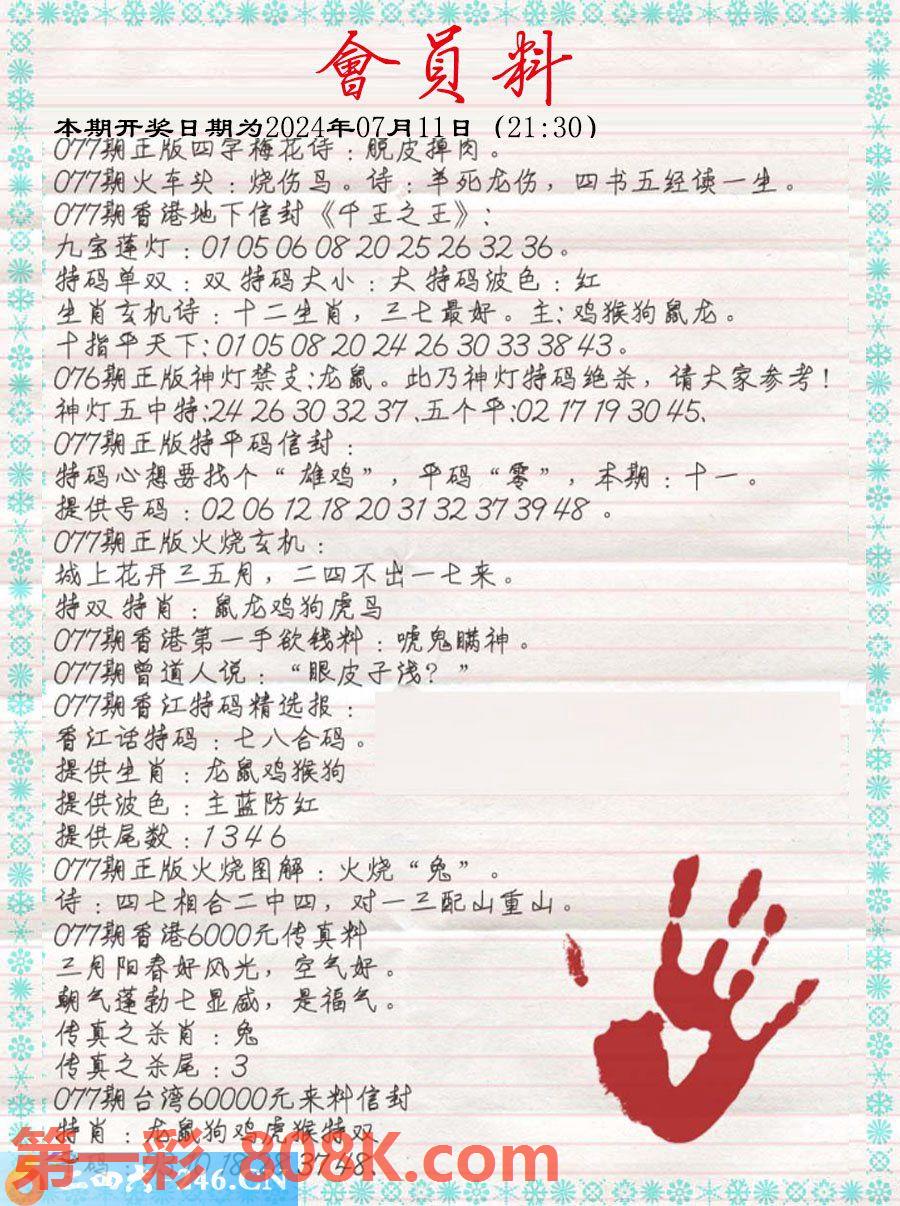 會員料
本期开奖日期为2024年07月11日（21:30）
077期正版四字梅花诗：脱皮掉肉。
077期火车头：烧伤鸟。诗：羊死龙伤，四书五经读一生。
077期香港地下信封《千王之王》：
九宝莲灯：01 05 06 08 20 25 26 32 36。
特码单双：双 特码大小：大 特码波色：红
生肖玄机诗：十二生肖，三七最好。主：鸡猴狗鼠龙。
十指平天下：01 05 08 20 24 26 30 33 38 43。
076期正版神灯禁支：龙鼠。此乃神灯特码绝杀，请大家参考！
神灯五中特：24 26 30 32 37 .五个平：02 17 19 30 45.
077期正版特平码信封：
特码心想要找个“雄鸡”，平码“零”，本期：十一。
提供号码：02 06 12 18 20 31 32 37 39 48 。
077期正版火烧玄机：
城上花开三五月，二四不出一七来。
特双 特肖：鼠龙鸡狗虎马
077期香港第一手欲钱料：唬鬼瞒神。
077期曾道人说：“眼皮子浅？”
077期香江特码精选报：
香江话特码：七八合码。
提供生肖：龙鼠鸡猴狗
提供波色：主蓝防红
提供尾数：1 3 4 6
077期正版火烧图解：火烧“兔”。
诗：四七相合二中四，对一三配山重山。
077期香港6000元传真料
三月阳春好风光，空气好。
朝气蓬勃七显威，是福气。
传真之杀肖：兔
传真之杀尾：3
077期台湾60000元来料信封
特肖：龙鼠狗鸡虎猴特双
第一彩 808K.com
246.CN
37 48.